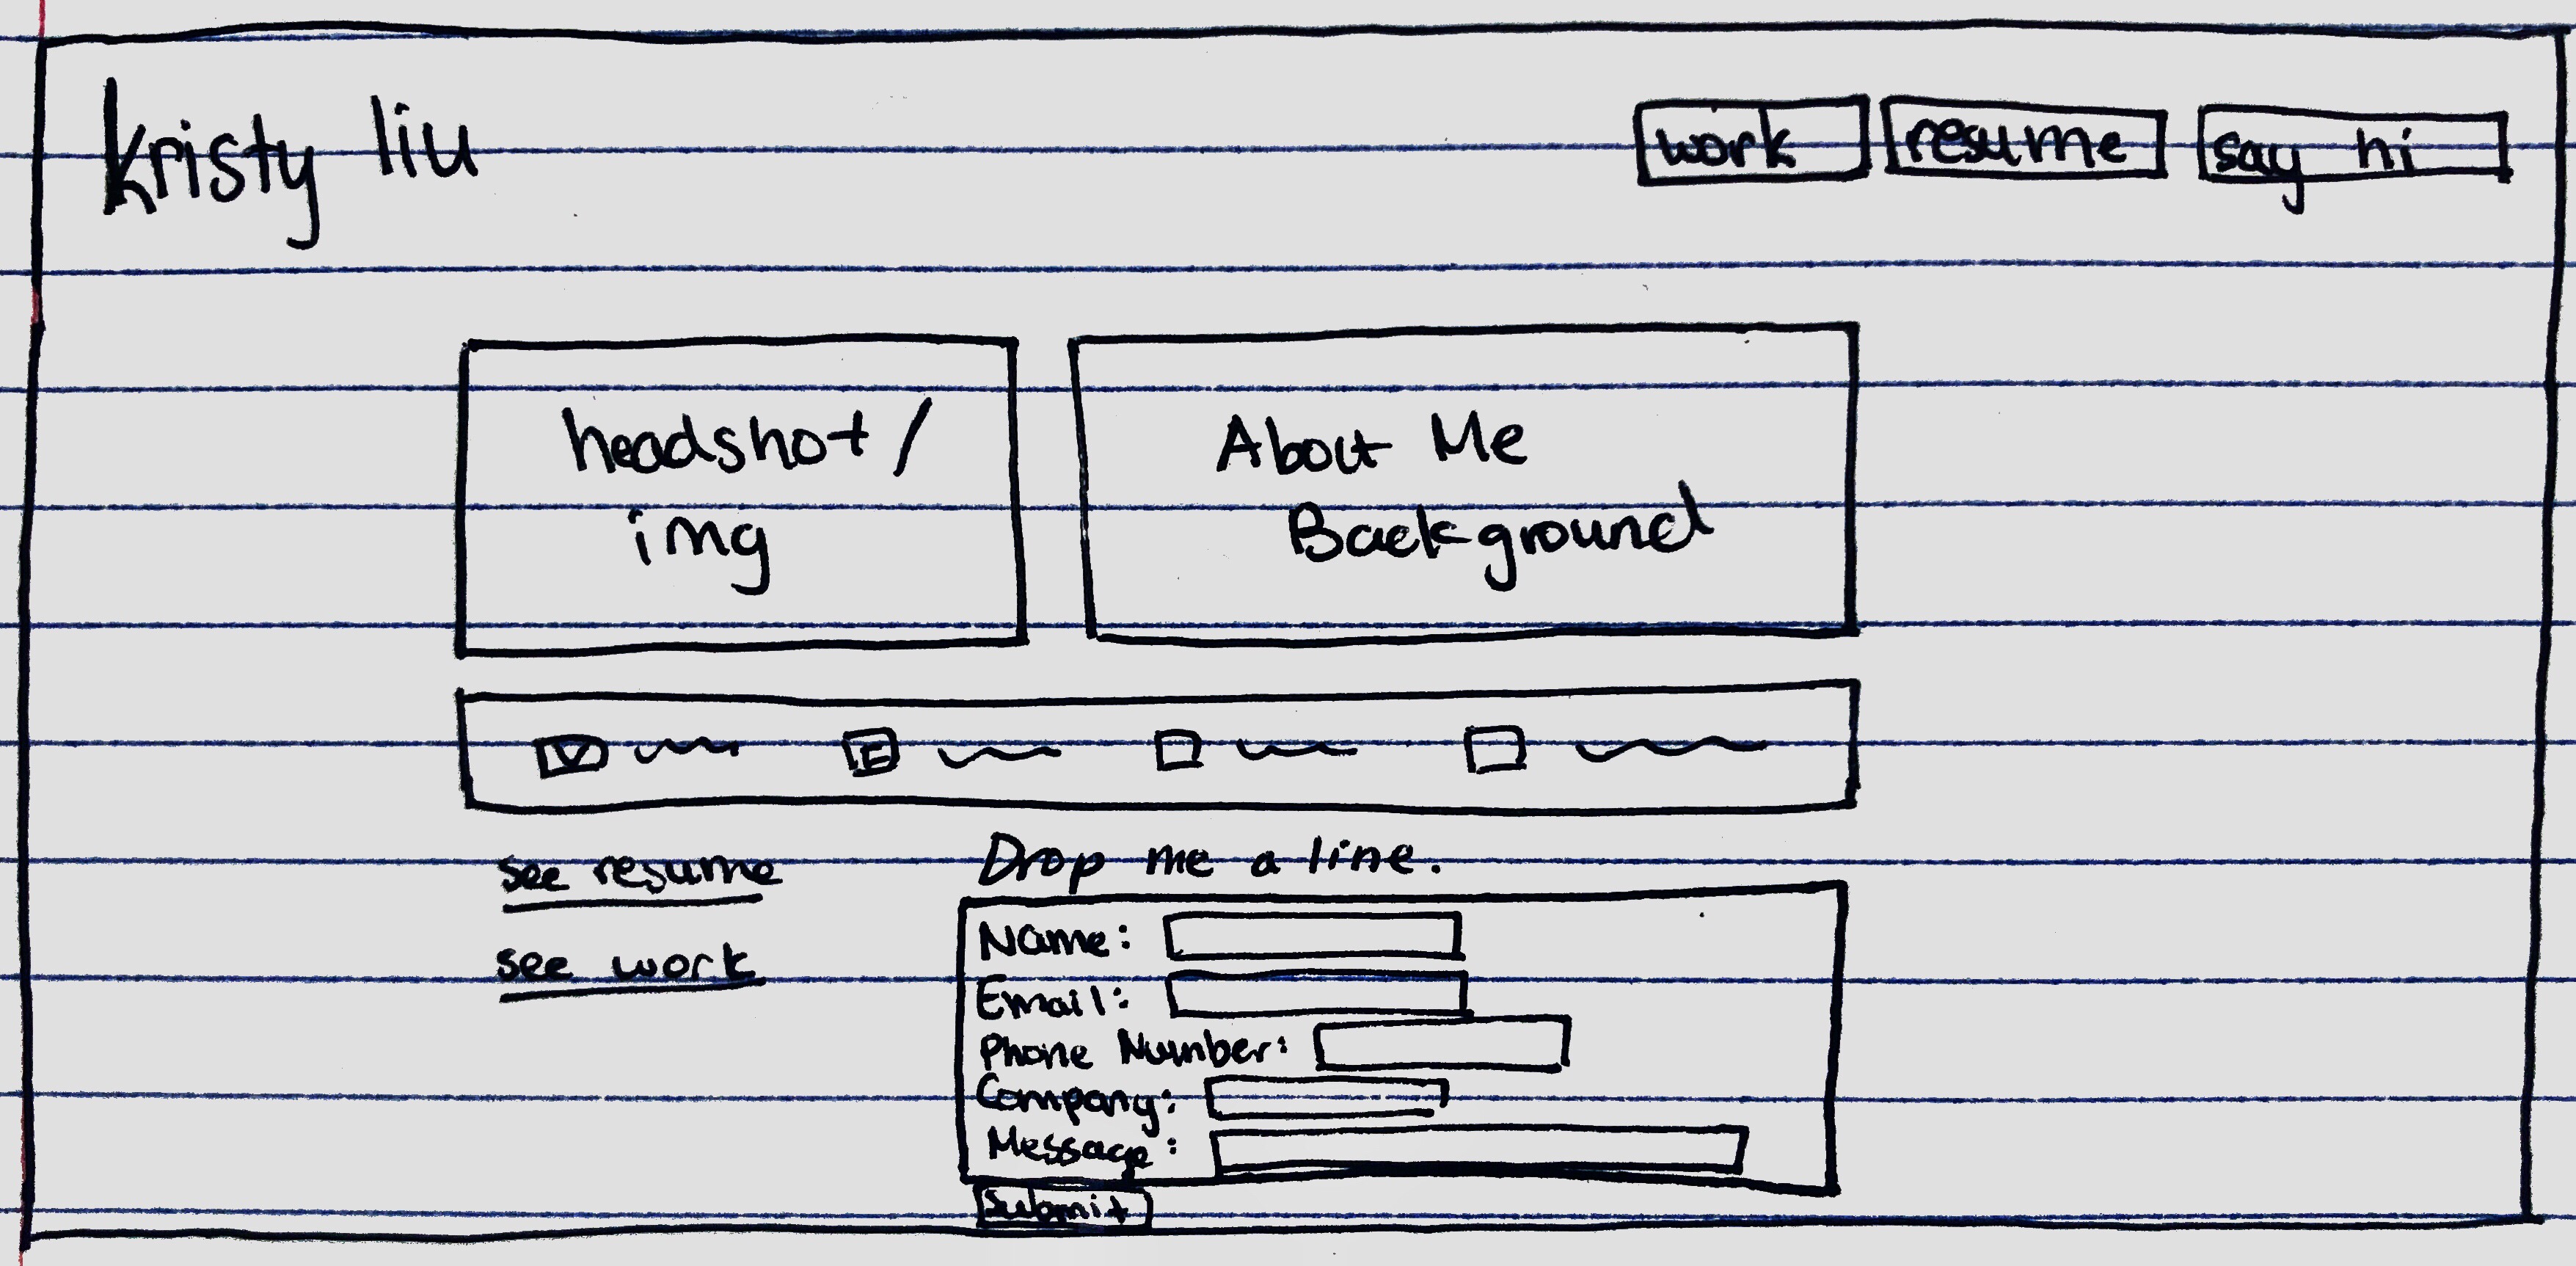 kristy liu
work
resume
say hi
headshot/
img
About Me
Background
E
see resume
see work
Drop me a line.
Name:
Email:
Phone Number:
Company:
Message:
Submit